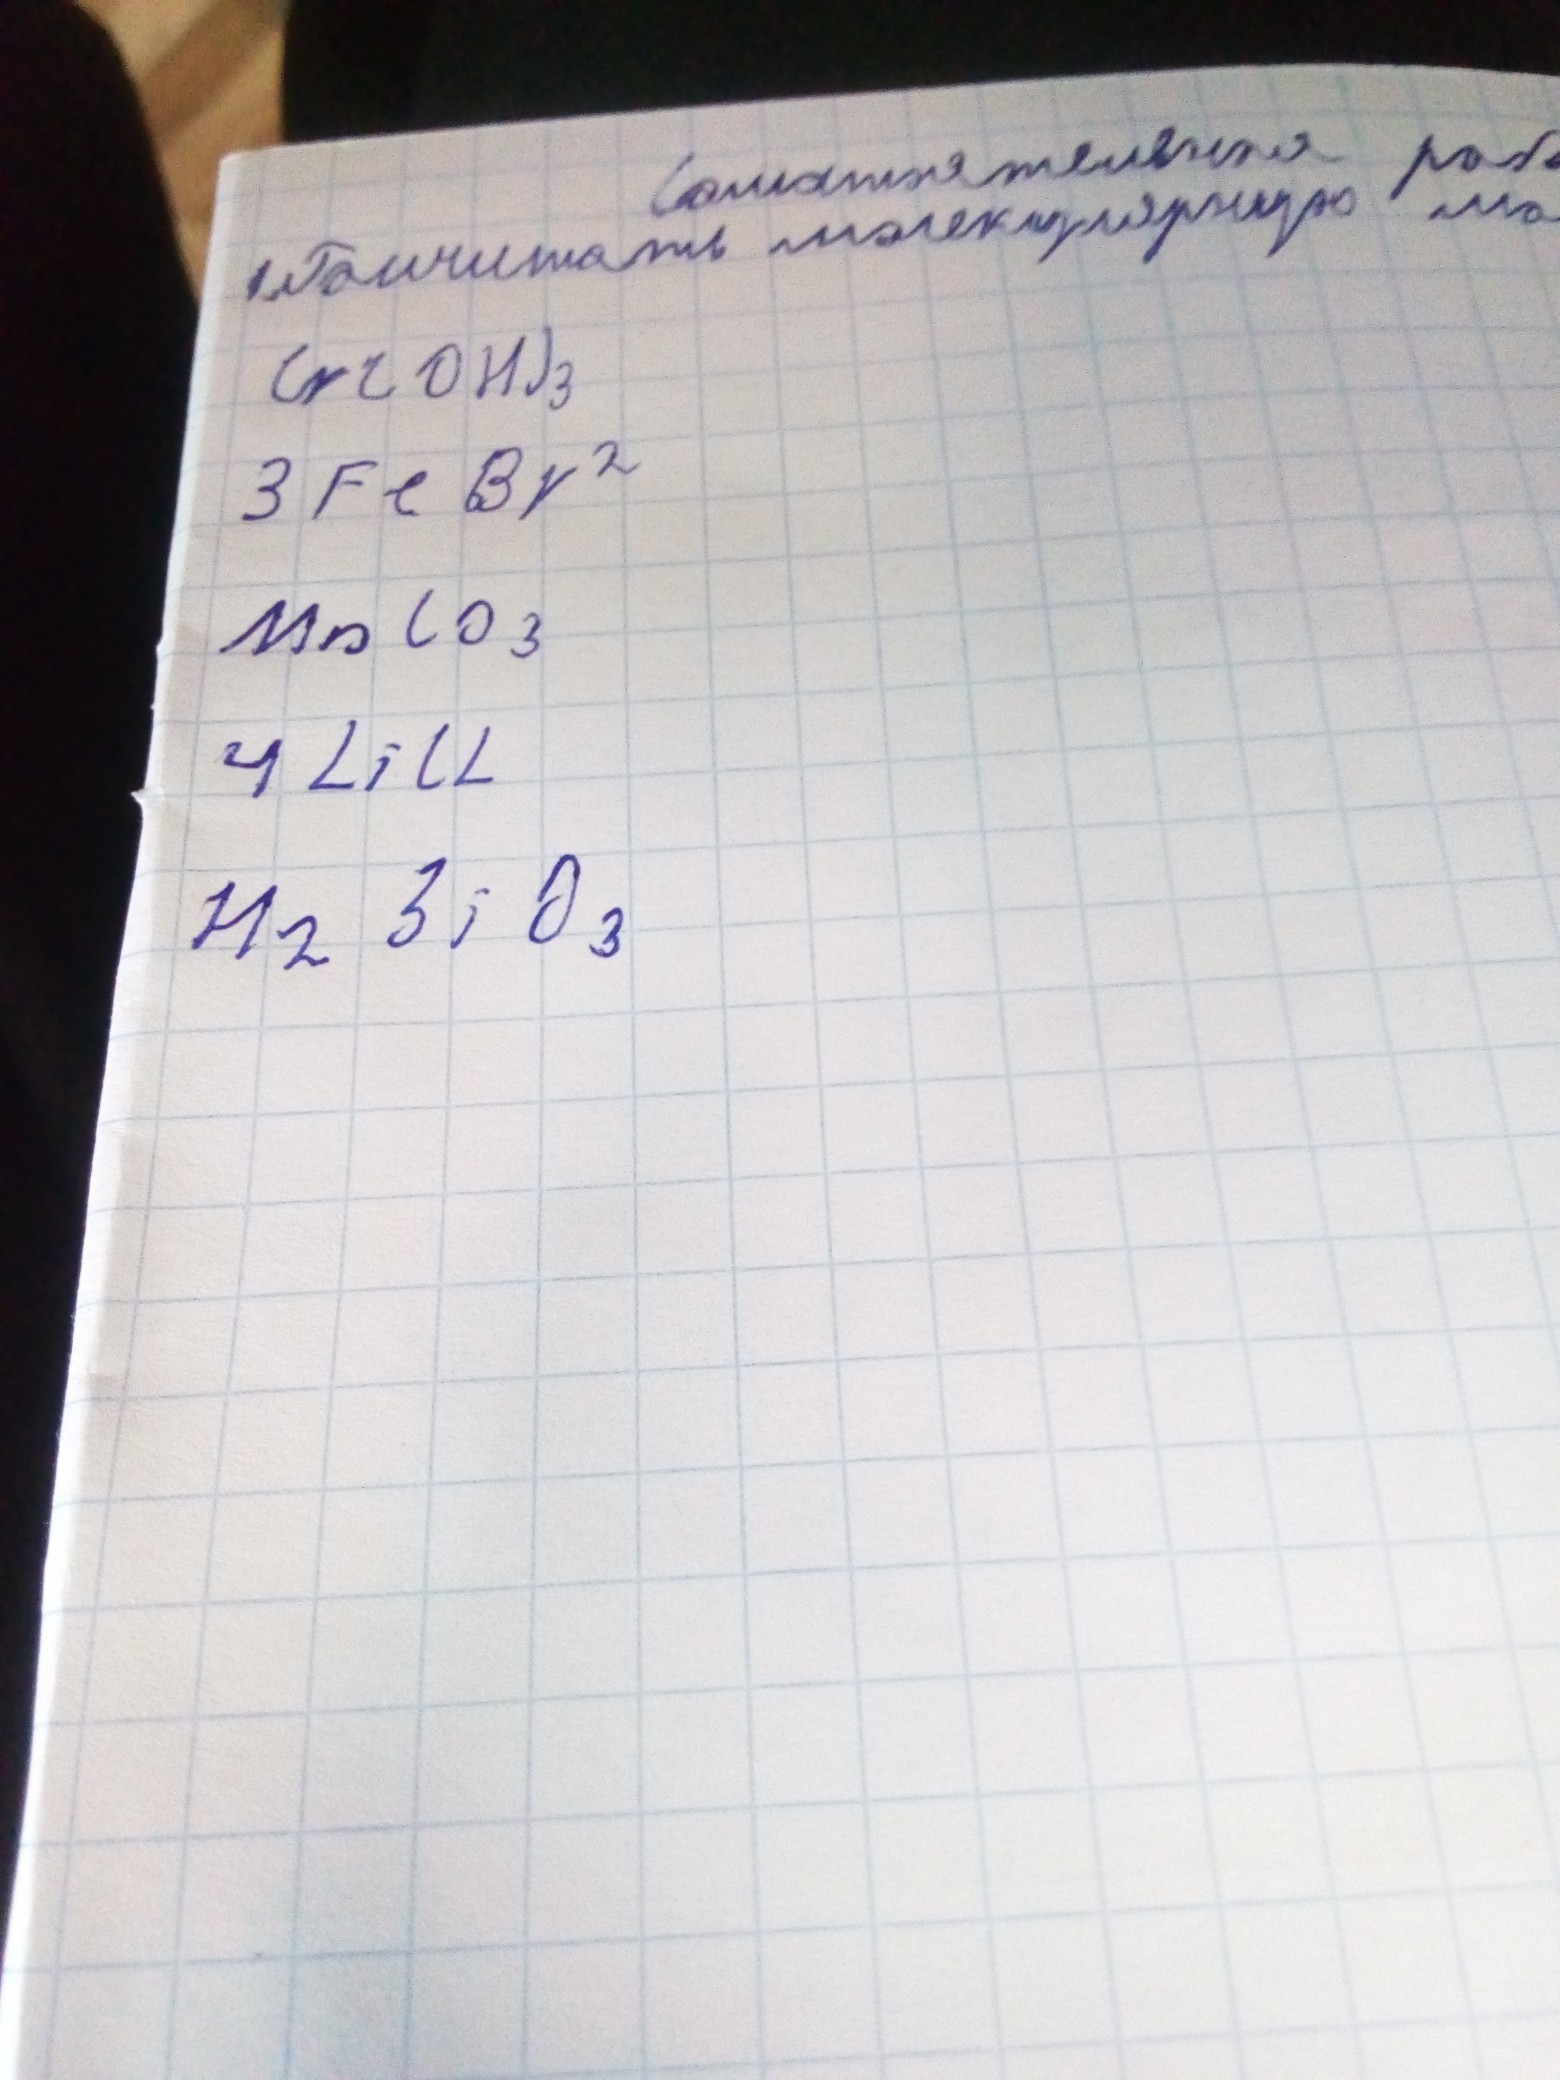 Самостоятельная рабо
1. Посчитать молекулярную ма
Cr(OH)₃
3FeBr²
MnCO₃
4LiCL
H₂SiO₃